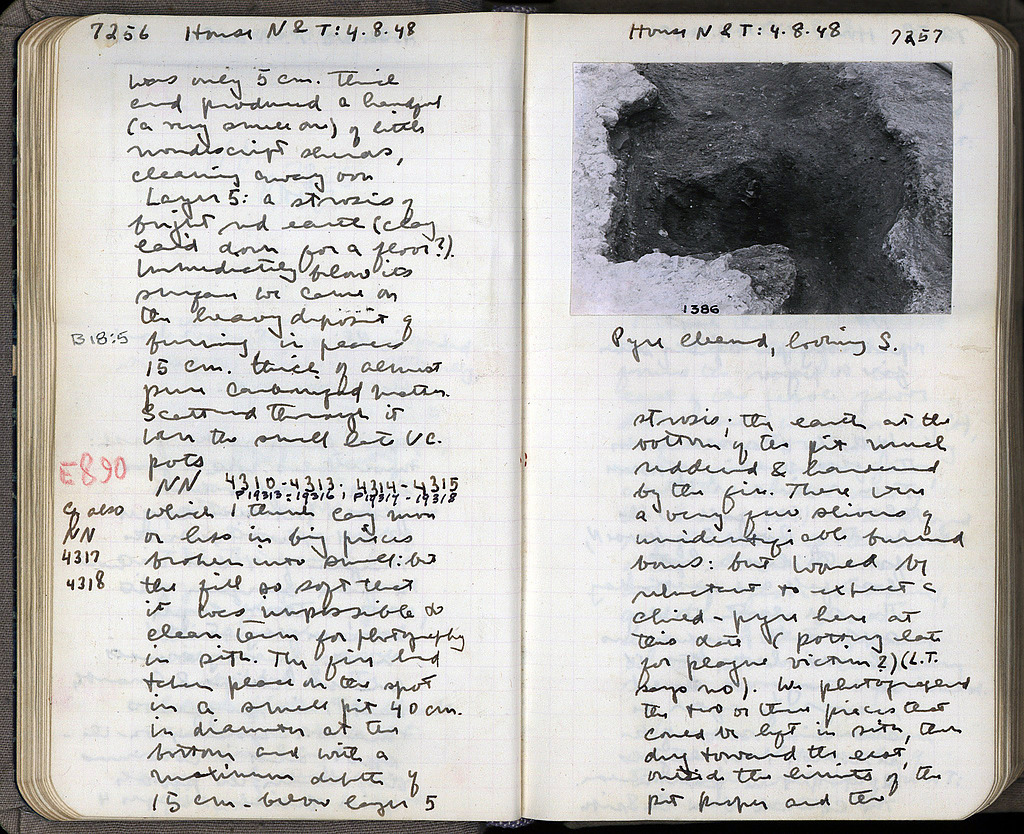 7256 House N & T: 4.8.48
was only 5 cm. thick
and produced a handful
(a very small one) of little
nondiscript sherds,
cleaning away our
Layer 5: a strosis of
bright red earth (clay
laid down for a floor?).
Immediately below its
surface we came on
the heavy deposit of
B 18:5
burning in places
15 cm. thick of almost
pure carbonized matter.
Scattered through it
were the small late V C.
pots
E 890
NN 4310-4313; 4314-4315
P19313-19316; P19317-19318
Cf. also
NN
4317
4318
which I think lay more
or less in big pieces
broken into small: but
the fill so soft that
it was impossible to
clean them for photography
in situ. The fire had
taken place on the spot
in a small pit 40 cm.
in diameter at the
bottom and with a
maximum depth of
15 cm. below layer 5
House N & T: 4.8.48 7257
1386
Pyre cleaned, looking S.
strosis; the earth at the
bottom of the pit much
reddened & hardened
by the fire. There were
a very few slivers of
unidentifiable burned
bones: but would be
reluctant to expect a
child-pyre here at
this date (potting late
for plague victim?) (L.T.
says no). We photographed
the two or three pieces that
could be left in situ, then
dug toward the east,
outside the limits of the
pit proper and the